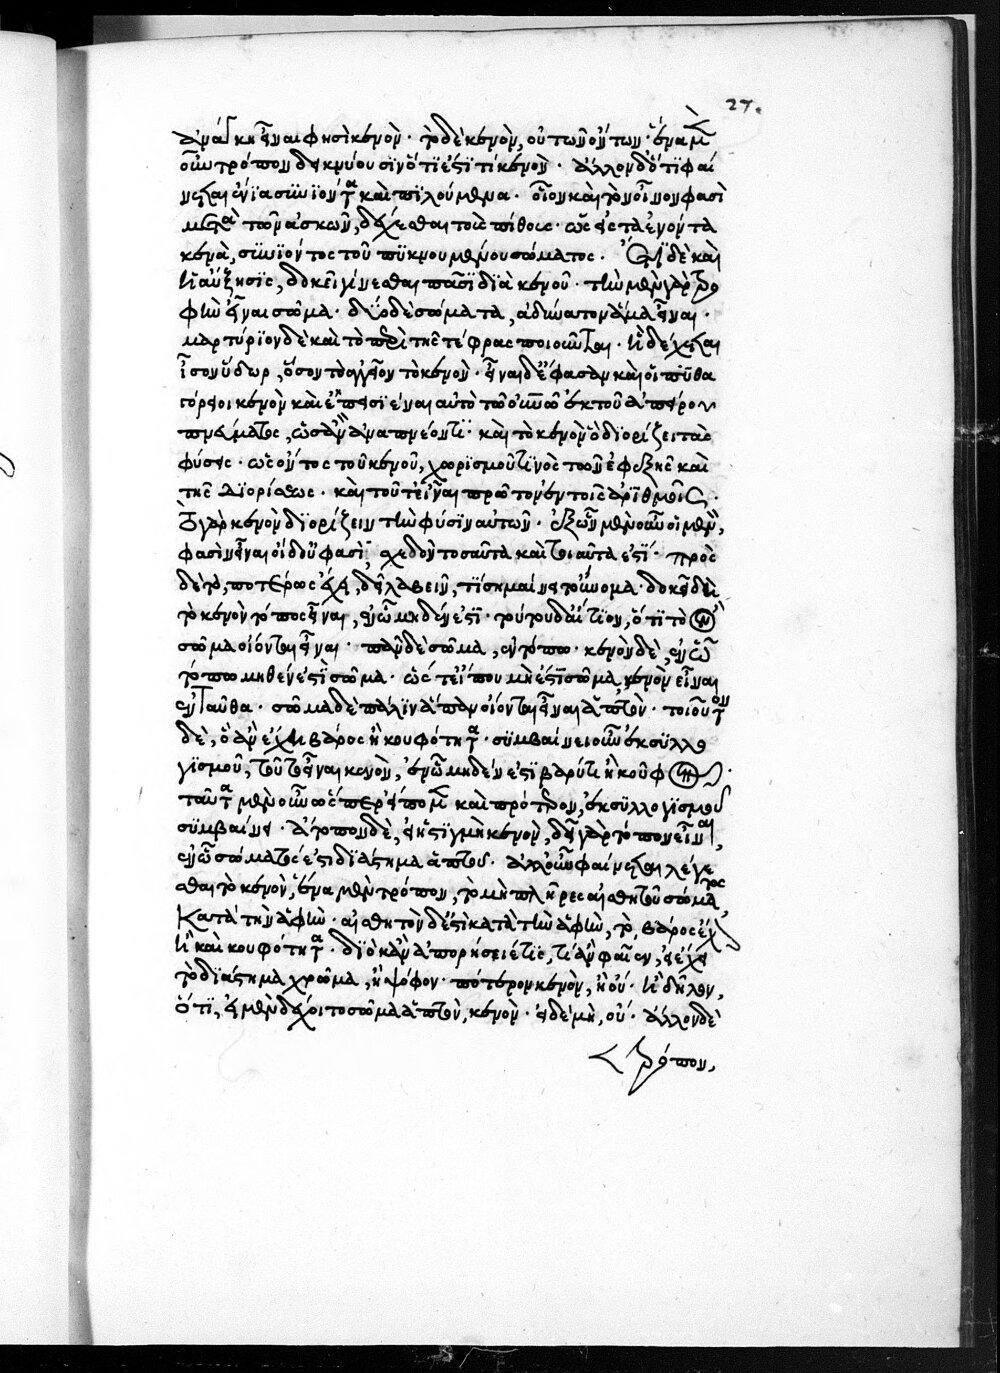 27.
ἀνάγκη εἶναι φησὶ κενὸν· τὸ δὲ κενὸν, οὐ τῶν ὄντων· ἕνα μὲν
οὖν τρόπον δεικνύουσιν ὅτι ἐστί τι κενὸν· ἄλλον δ' ὅτι φαί
νεται ἔνια συνιόντα καὶ πιλούμενα· οἷον καὶ τὸν οἶνον φασὶ
μετὰ τῶν ἀσκῶν, δέχεσθαι τοὺς πίθους· ὡς εἰς τὰ ἐνόντα
κενὰ, συνιόντος τοῦ πυκνουμένου σώματος· Ἔτι δὲ καὶ
ἡ αὔξησις, δοκεῖ γίνεσθαι πᾶσι διὰ κενοῦ· τὴν μὲν γὰρ τρο
φὴν εἶναι σῶμα· δύο δὲ σώματα, ἀδύνατον ἅμα εἶναι·
μαρτύριον δὲ καὶ τὸ περὶ τῆς τέφρας ποιοῦνται· ἣ δέχεται
ἴσον ὕδωρ, ὅσον τὸ ἀγγεῖον τὸ κενὸν· εἶναι δ' ἔφασαν καὶ οἱ πυθα
γόρειοι κενὸν καὶ ἐπεισιέναι αὐτὸ τῷ οὐρανῷ ἐκ τοῦ ἀπείρου
πνεύματος, ὡσὰν ἀναπνέοντι· καὶ τὸ κενὸν ὃ διορίζει τὰς
φύσεις· ὡς ὄντος τοῦ κενοῦ, χωρισμοῦ τινὸς τῶν ἐφεξῆς καὶ
τῆς διορίσεως· καὶ τοῦτ' εἶναι πρῶτον ἐν τοῖς ἀριθμοῖς·
τὸ γὰρ κενὸν διορίζειν τὴν φύσιν αὐτῶν· ἐξ ὧν μὲν οὖν οἱ μὲν,
φασὶν εἶναι οἱ δ' οὔ φασι, σχεδὸν τοσαῦτα καὶ τοιαῦτα ἐστί· πρὸς
δὲ τὸ, ποτέρως ἔχει, δεῖ λαβεῖν, τί σημαίνει τοὔνομα· δοκεῖ δὴ
τὸ κενὸν τόπος εἶναι, ἐν ᾧ μηδέν ἐστι· τούτου δ' αἴτιον, ὅτι τὸ ὂν
σῶμα οἴονται εἶναι· πᾶν δὲ σῶμα, ἐν τόπῳ· κενὸν δὲ, ἐν ᾧ
τόπῳ μηθέν ἐστι σῶμα· ὥστ' εἴ που μή ἐστι σῶμα, κενὸν εἶναι
ἐνταῦθα· σῶμα δὲ πάλιν ἅπαν οἴονται εἶναι ἁπτὸν· τοιοῦτον
δὲ, ὃ ἂν ἔχῃ βάρος ἢ κουφότητα· συμβαίνει οὖν ἐκ συλλο
γισμοῦ, τοῦτο εἶναι κενὸν, ἐν ᾧ μηδέν ἐστι βαρὺ ἢ κοῦφον·
ταῦτα μὲν οὖν ὥσπερ εἴπομεν καὶ πρότερον, ἐκ συλλογισμοῦ
συμβαίνει· ἄτοπον δὲ, εἰ ἡ στιγμὴ κενὸν, δεῖ γὰρ τόπον εἶναι,
ἐν ᾧ σώματός ἐστι διάστημα ἁπτοῦ· ἀλλ' οὖν φαίνεται λέγε
σθαι τὸ κενὸν, ἕνα μὲν τρόπον, τὸ μὴ πλῆρες αἰσθητοῦ σώματος
κατὰ τὴν ἁφὴν· αἰσθητὸν δ' ἐστὶ κατὰ τὴν ἁφὴν, τὸ, βάρος ἔχον
ἢ καὶ κουφότητα· διὸ κἂν ἀπορήσειέ τις, τί ἂν φαῖεν, εἰ ἔχει
τὸ διάστημα χρῶμα, ἢ ψόφον· πότερον κενὸν, ἢ οὔ· ἢ δῆλον,
ὅτι, εἰ μὲν δέχοιτο σῶμα ἁπτὸν, κενὸν· εἰ δὲ μὴ, οὔ· ἄλλον δὲ
τρόπον,